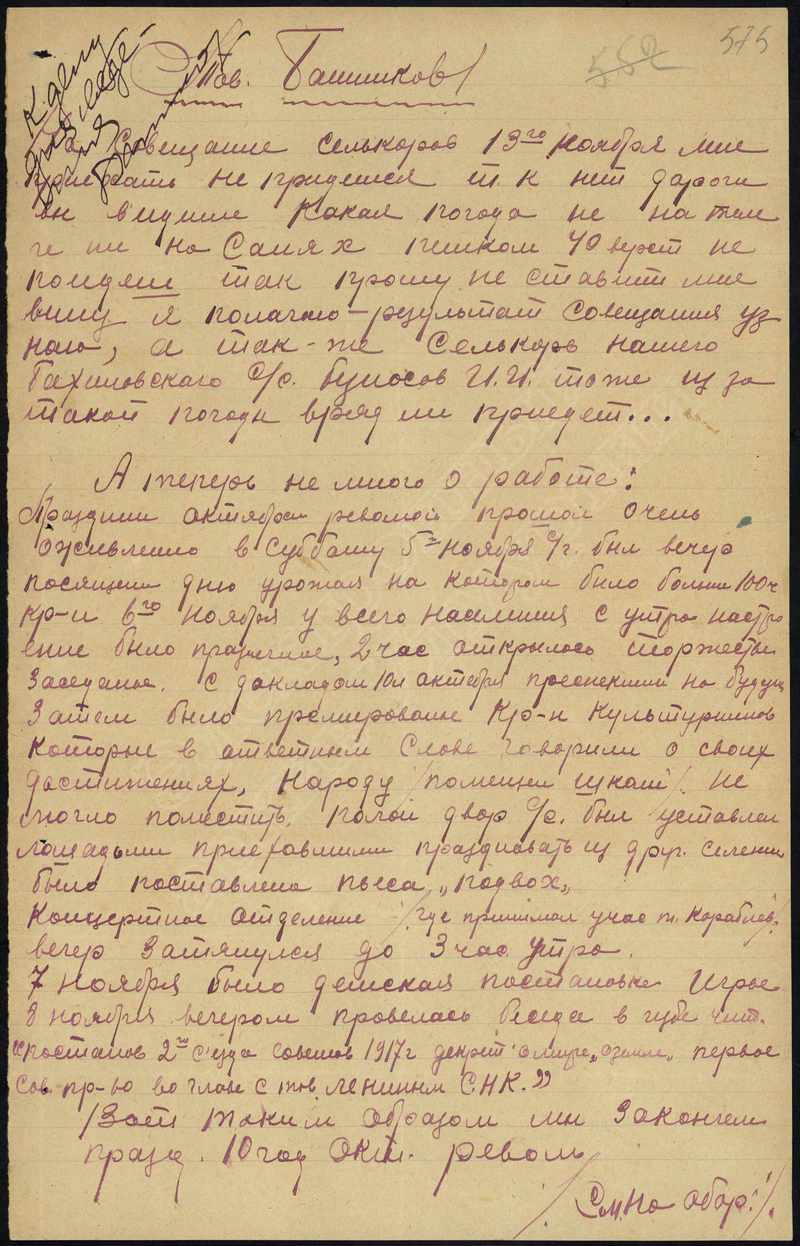 575
552
Тов. Башников
К делу
На Совещание селькоров 13го ноября мне
приехать не придется т. к нет дороги
вы видите какая погода не на теле
ге ни на Санях пешком 40 верст не
пойдеш так прошу не ставить мне
вину я полагаю результат совещания уз
наю, а так-же Селькоръ нашего
с/с. И.И. тоже из за
такой погоды вряд ли приедет...
А теперь не много о работе:
Праздник октябрьск револю прошол очень
оживленно в Субботу 5го ноября с/г. был вечер
посящен дню урожая на котором было больше 100ч
кр-н 6го ноября у всего населения с утра настро
ение было праздничное, 2 час открылось торжеств
Заседание. с докладом 10л октября преспективы на будущ
Затем было премирование Кр-н Культурников
которые в ответном Слове говорили о своих
достижениях, Народу /помещен школ/ не
могло поместить. полой двор с/с. был уставлен
лошадьми приехавшими праздновать из друг. селении
было поставлена пьеса „подвох„
Концертное отделение /где принимал учас т. Кораблев/
вечер затянулся до 3 час утра.
7 ноября было детская постановка Игры
8 ноября вечером провелась беседа в избе чит.
"постанов 2го с'езда советов 1917г декрет о мире„ о земле„ первое
Сов пр-во во главе с тов Лениным С.Н.К."
Вот таким образом мы закончели
празд. 10 год Окт. револ
/См. на обор./